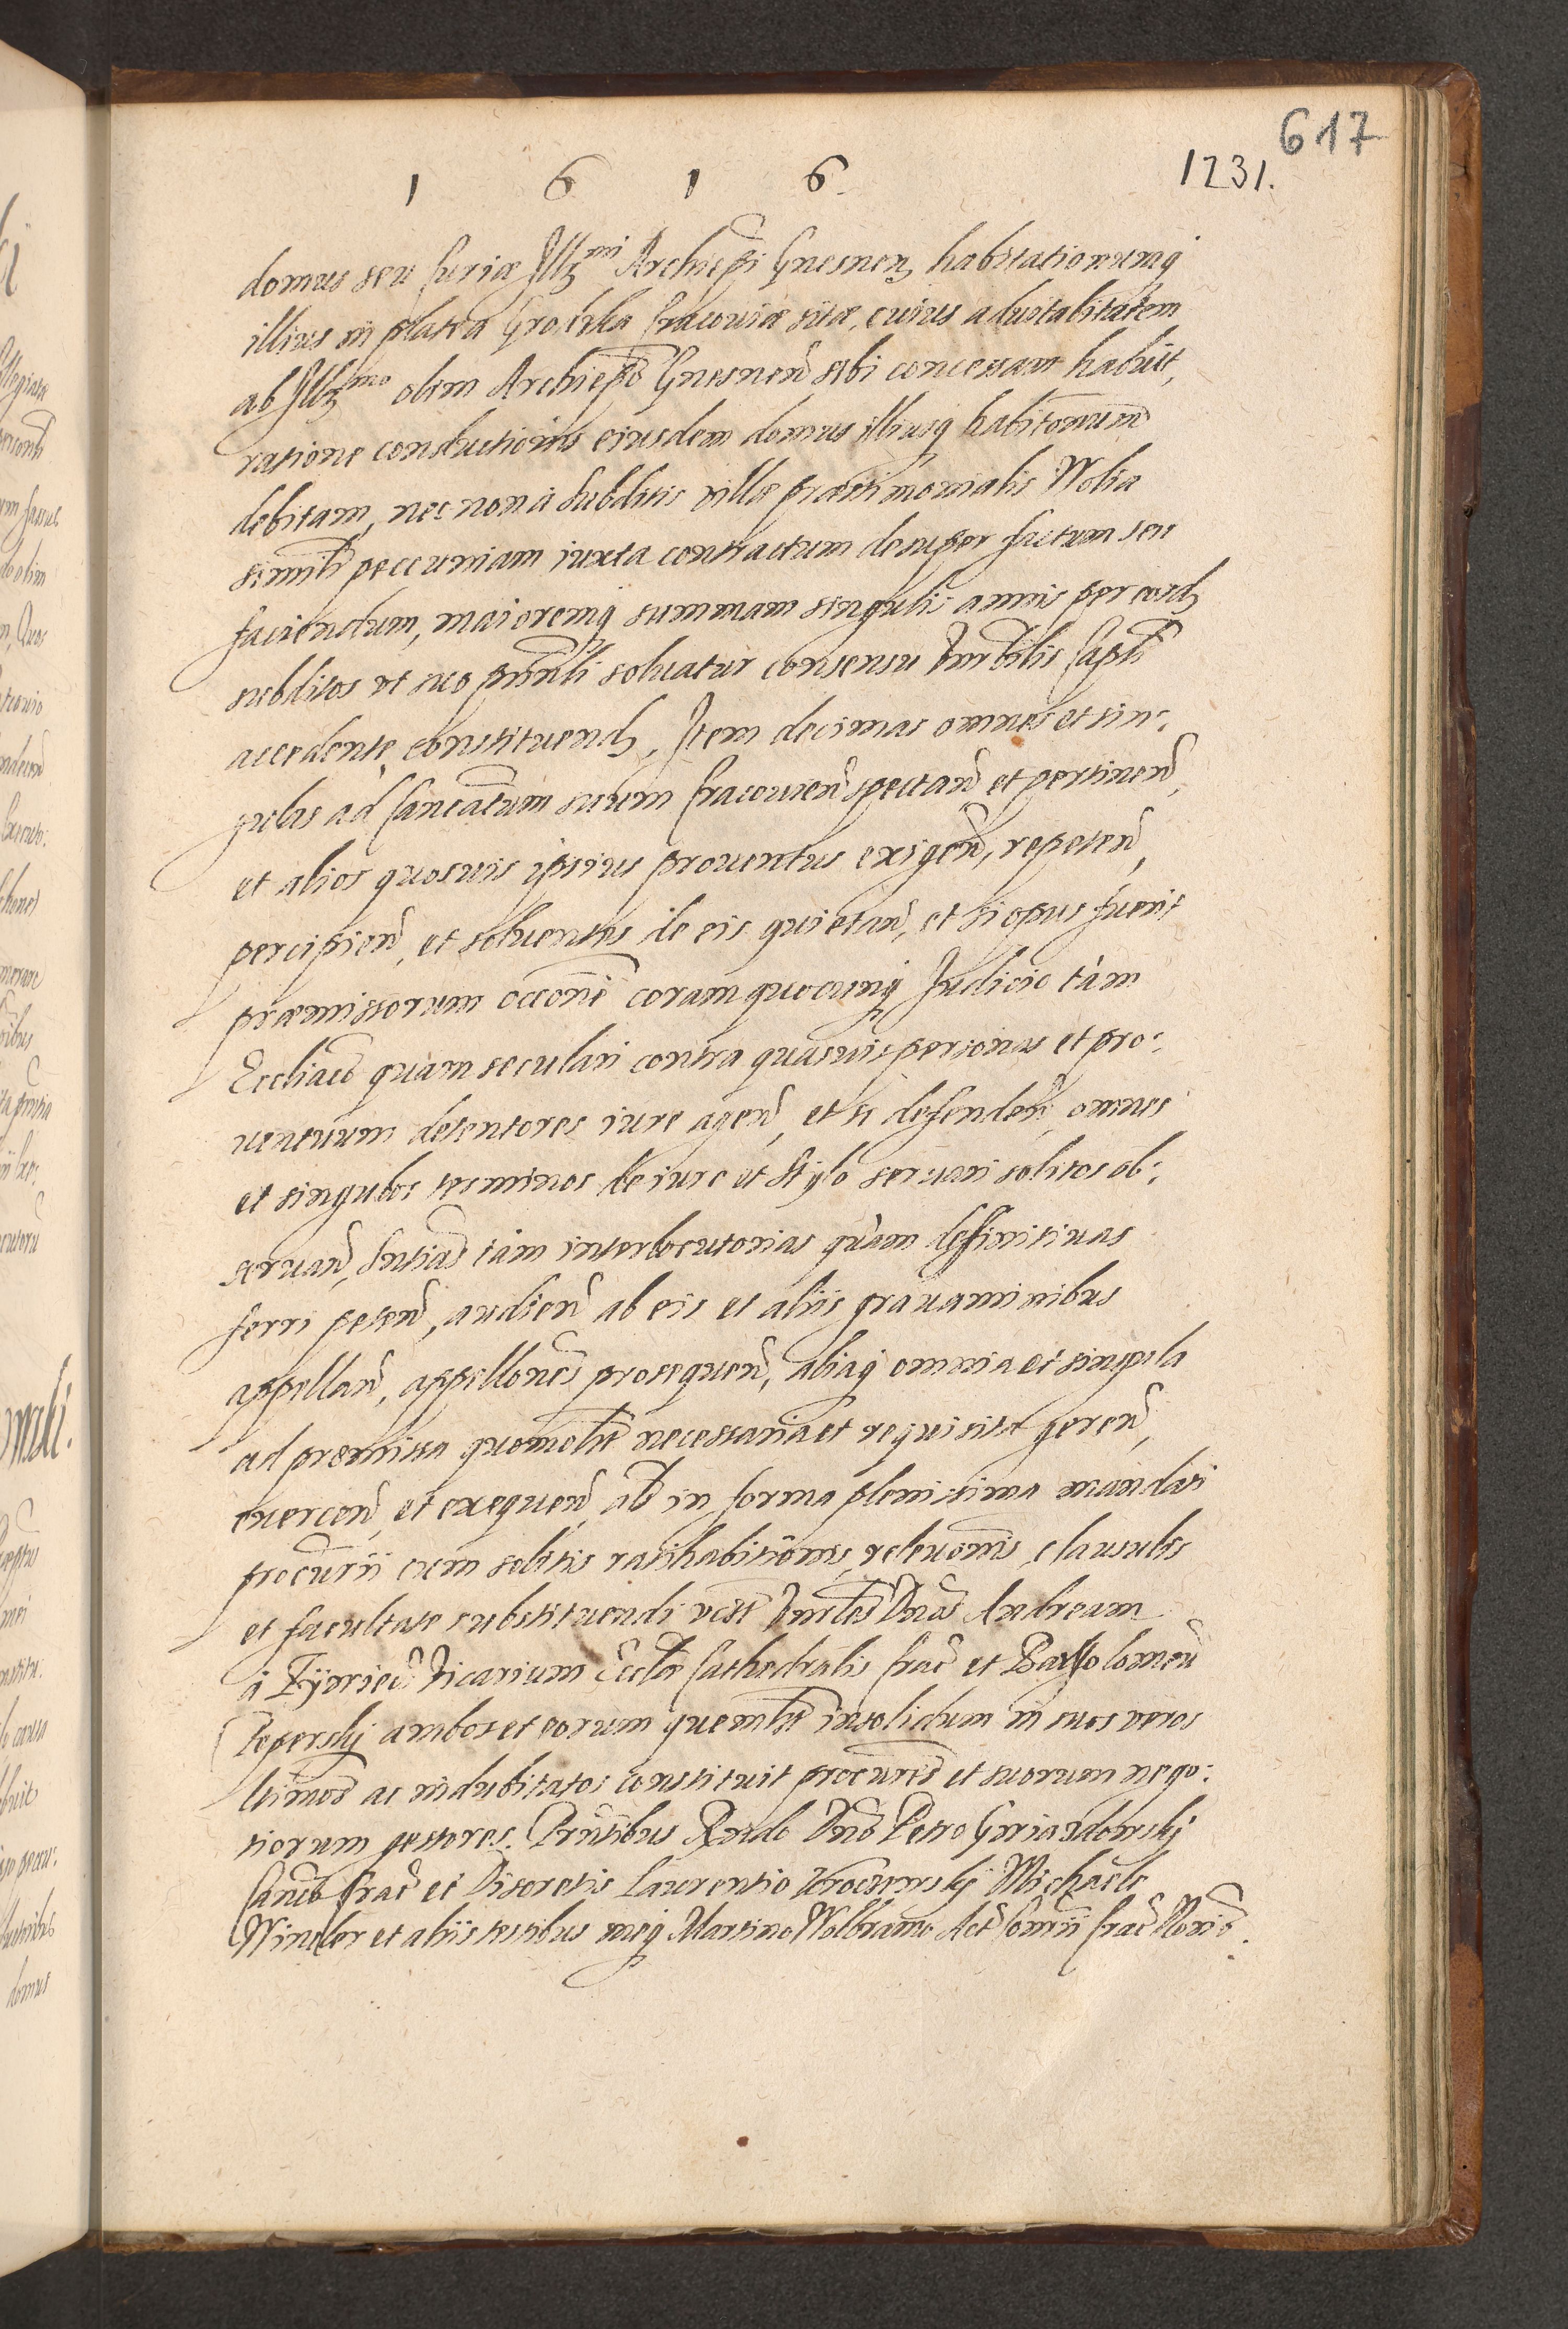 617
1 6 1 6
1231.
domus seu Curiæ Illmi Archiepi Gnesnen habitationumq
illius in platea Grodzka Cracouiæ sitæ, cuius aduitalitatem
ab Illmo olim Archiepo Gnesnen sibi concessam habuit,
ratione conductionis eiusdem domus illiusq habitonum
debitam, nec non à subditis villæ præstimonialis Wolia
simili peccuniam iuxta contractum desuper factum seu
faciendum, maioremq summam singulis annis per eosd
subditos vt suo principali soluatur consensu Vnrblis Capli
accedente constituend, Item decimas omnes et sin:
gulas ad Cancatum suum Cracouien spectan et pertinen,
et alios quosuis ipsius prouentus exigen, repeten,
percipien, et soluentes de eis quietan, et si opus fuerit
præmissorum occone coram quocunq Iudicio tàm
Eccliaco quam seculari contra quasuis personas et pro:
uentuum detentores iure agen, et se defenden, omnes
et singulos terminos de iure et stylo seruari solitos ob:
seruan, sntias tàm interlocutorias quàm deffinitiuas
ferri peten, audien ab eis et aliis grauaminibus
appellan, appellones prosequen, aliaq omnia et singula
ad præmissa quomolt necessaria et requisita geren,
exercen, et exequen, ac in forma plenissima mandati
procurii cum solitis ratihabitionis, releuonis, clausulis
et facultate substituendi vclt Vnrbles Dnos Andream
à Zÿwiec Vicarium Ecclæ Cathedralis Crac et Bartolomeu
Toperskj ambos et eorum quemlt insolidum in suos veros
ltimos ac indubitatos constituit procures et suorum nego:
tiorum gestores. Prntibus Rndo Dno Petro Goriaszdowskj
Canco Crac et Discretis Laurentio Kroczewskj Michaele
Wincler et aliis testibus meq Martino Wolbramo Act Consrii Crac Norio.